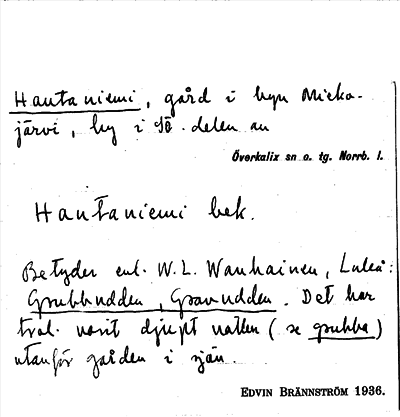 Hautaniemi, gård i byn Mieko-
järvi, by i sö. delen av
Överkalix sn o. tg. Norrb. l.
Hautaniemi bek.
Betyder enl. W. L. Wanhainen, Luleå:
Grubbudden, Gravudden. Det har
trol. varit djupt vatten (se grubba)
utanför gården i sjön.
EDVIN BRÄNNSTRÖM 1936.